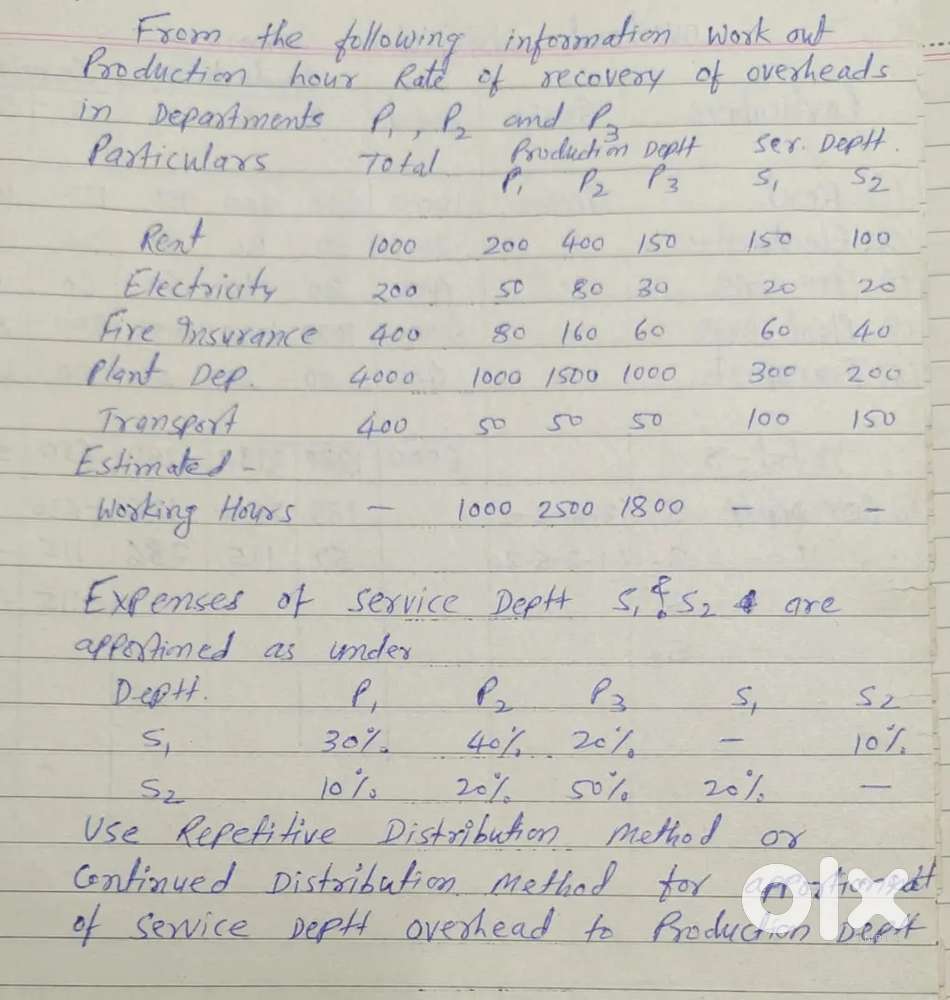 From the following information work out
Production hour Rate of recovery of overheads
in Departments P1, P2 and P3
Particulars Total Production Deptt Ser. Deptt.
P1 P2 P3 S1 S2
Rent 1000 200 400 150 150 100
Electricity 200 50 80 30 20 20
Fire Insurance 400 80 160 60 60 40
Plant Dep. 4000 1000 1500 1000 300 200
Transport 400 50 50 50 100 150
Estimated -
Working Hours - 1000 2500 1800 - -
Expenses of service Deptt S1 & S2 are
apportined as under
Deptt. P1 P2 P3 S1 S2
S1 30% 40% 20% - 10%
S2 10% 20% 50% 20% -
Use Repetitive Distribution method or
Continued Distribution method for
of service Deptt overhead to Production Deptt
olx